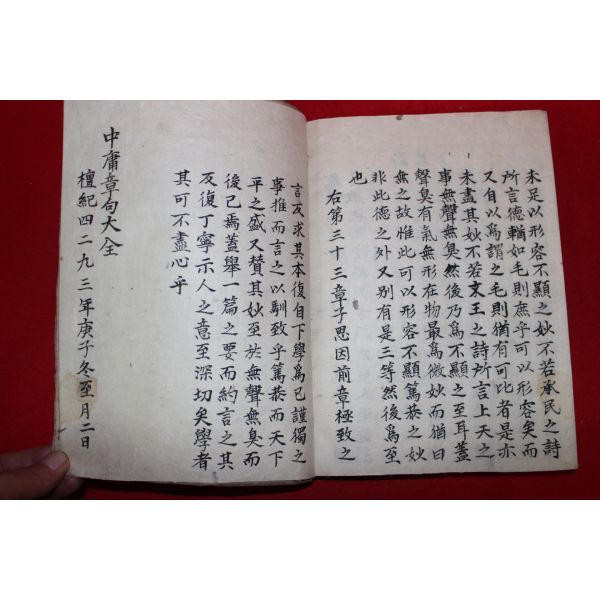 未足以形容不顯之妙不若烝民之詩
所言德輶如毛則庶乎可以形容矣而
又自以爲謂之毛則猶有可比者是亦
未盡其妙不若文王之詩所言上天之
事無聲無臭然後乃爲不顯之至耳蓋
聲臭有氣無形在物最爲微妙而猶曰
無之故惟此可以形容不顯篤恭之妙
非此德之外又別有是三等然後爲至
也
右第三十三章子思因前章極致之
言反求其本復自下學爲己謹獨之
事推而言之以馴致乎篤恭而天下
平之盛又贊其妙至於無聲無臭而
後已焉蓋舉一篇之要而約言之其
反復丁寧示人之意至深切矣學者
其可不盡心乎
中庸章句大全
檀紀四二九三年庚子冬至月二日